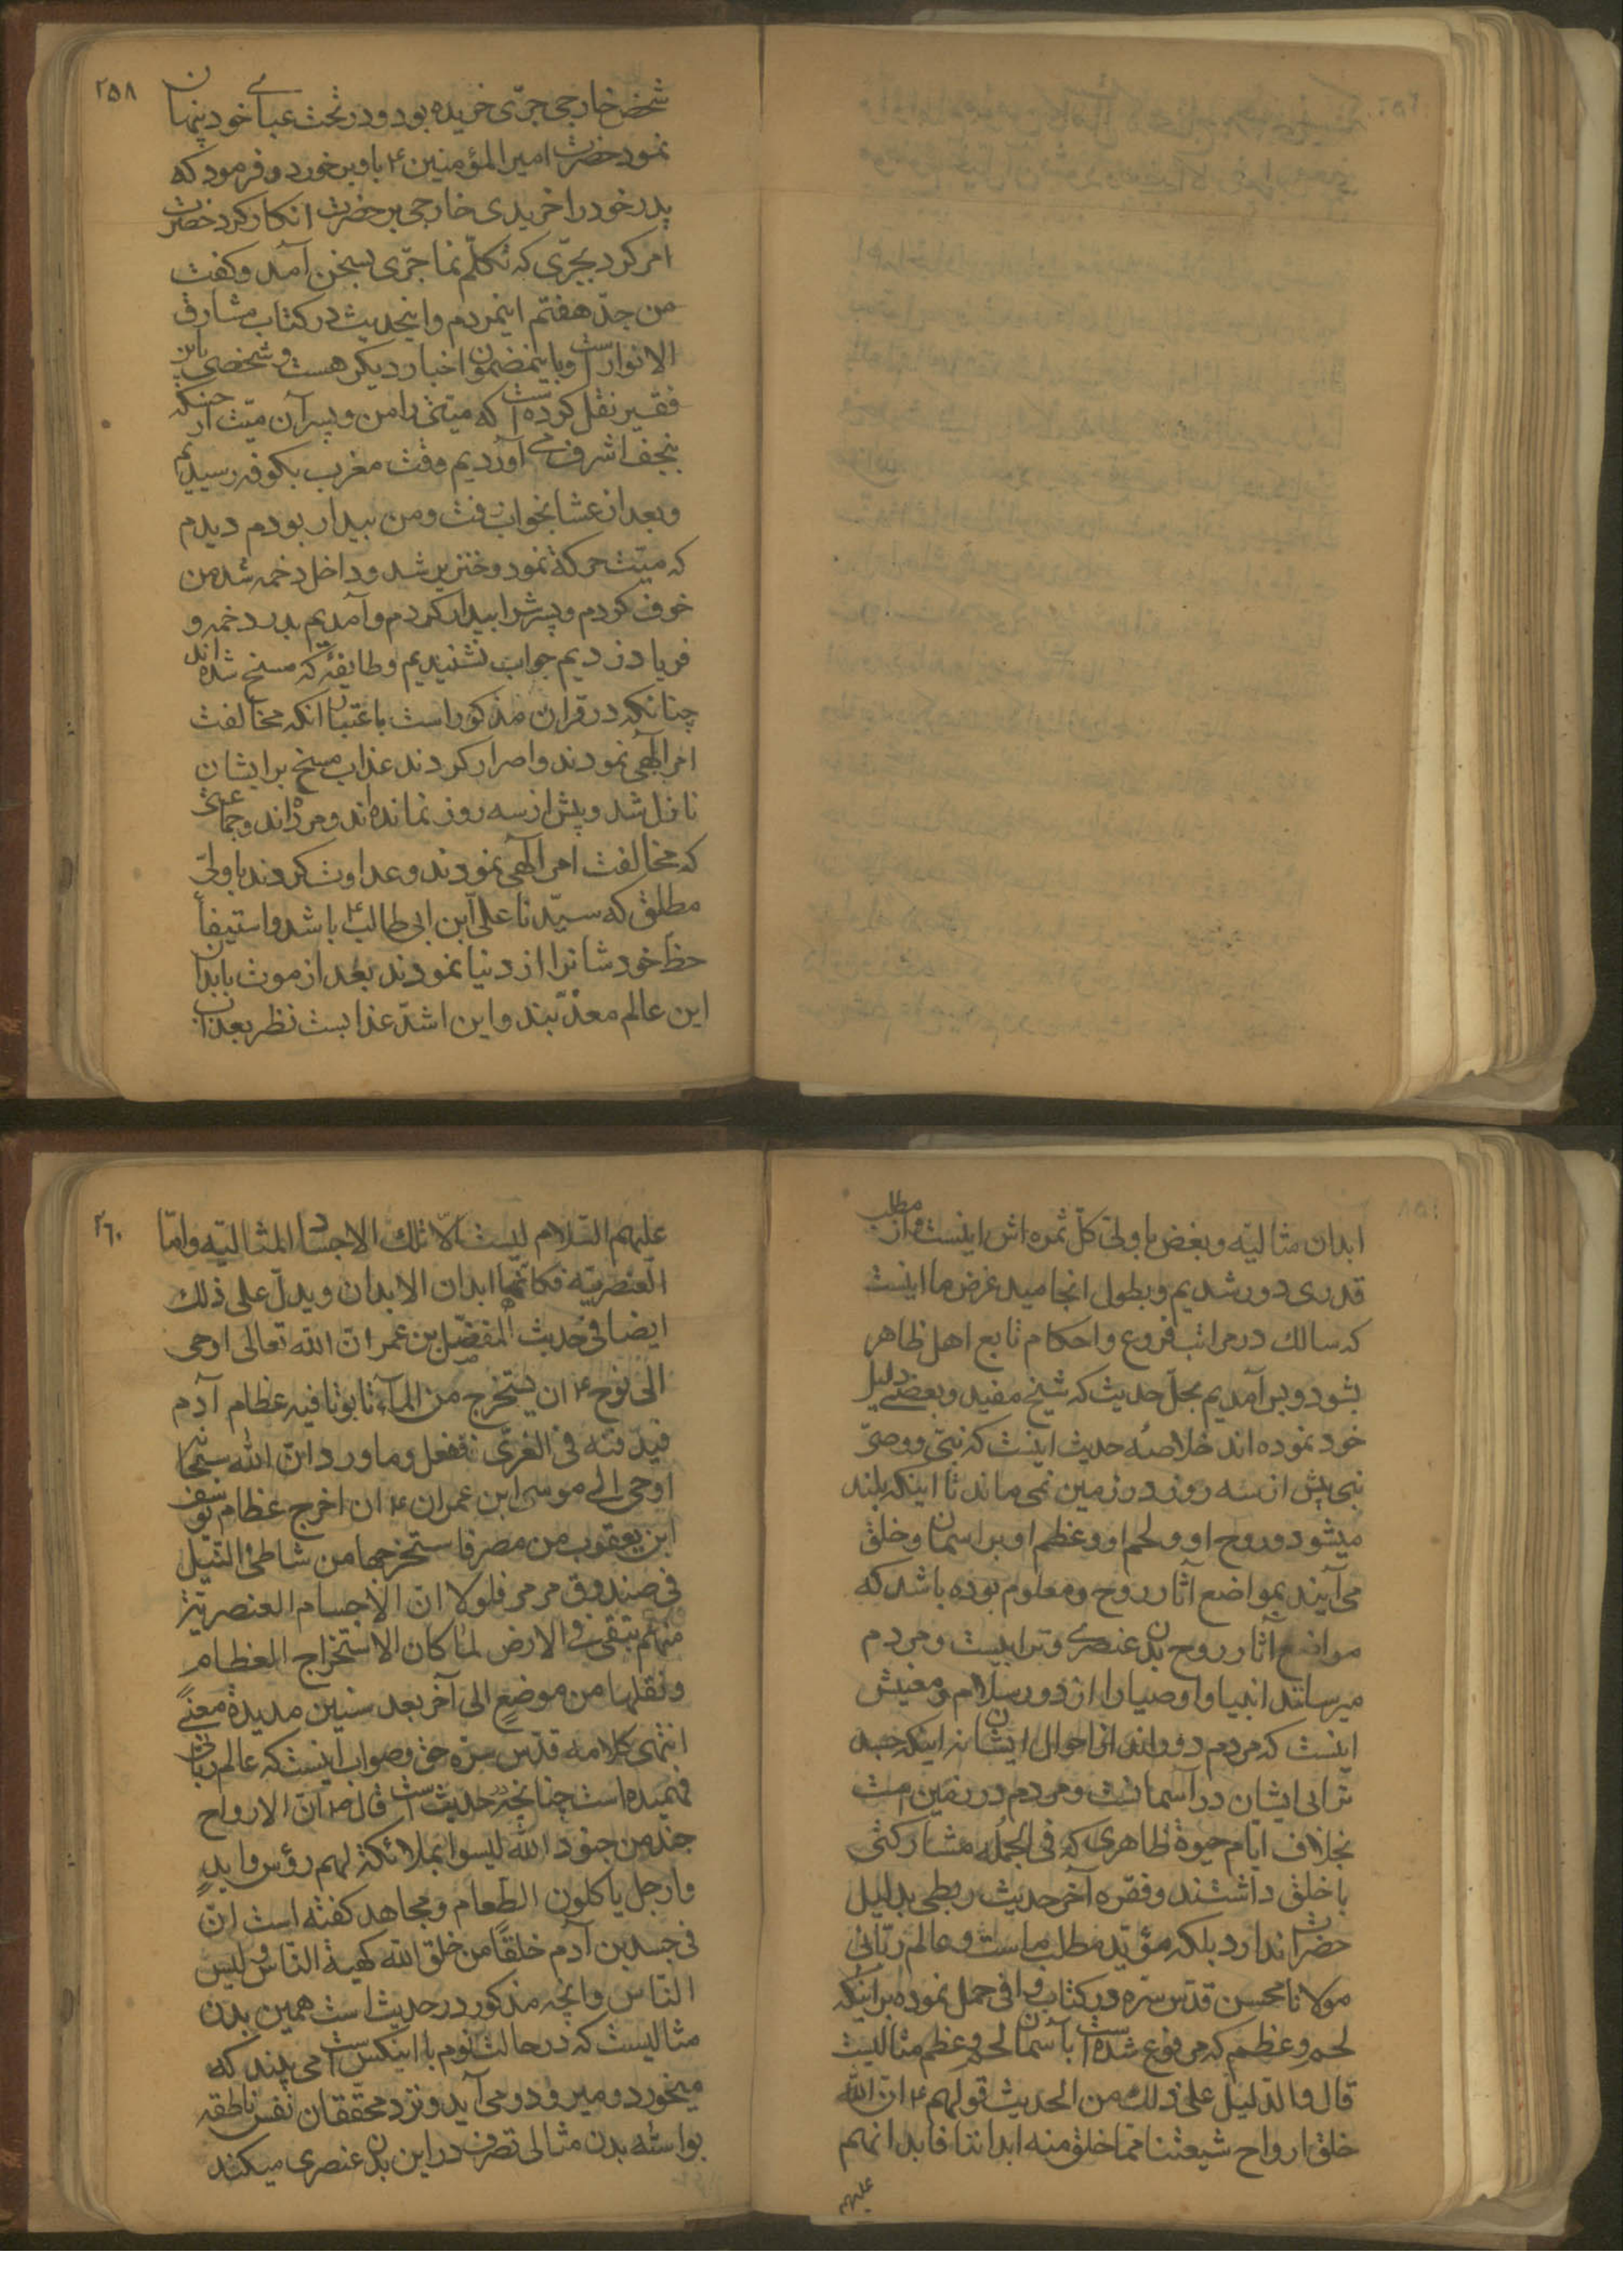 ۲۵۸
شخص خارجی جرّی خریده بود و در تحت عبای خود پنهان
نمود حضرت امیر المؤمنین ع باو بر خورد و فرمود که
پدر خود را خریدی خارجی بر حضرت انکار کرد حضرت
امر کرد بجرّی که تکلّم نما جرّی بسخن آمد و کفت
من جدّ هفتم اینمردم و اینحدیث در کتاب مشارق
الانوار است و باینمضمون اخبار دیکر هست و شخصی باین
فقیر نقل کرده است که میتی را من و پسر آن میّت از
بنجف اشرف می آوردیم وقت مغرب بکوفه رسیدیم
و بعد از عشا بخواب رفت و من بیدار بودم دیدم
که میّت حرکة نمود و خنزیر شد و داخل دخمه شد من
خوف کردم و پسرش را بیدار کردم و آمدیم بدر دخمه و
فریاد زدیم جواب نشنیدیم و طایفهٔ که مسخ شده اند
چنانکه در قران مذکور است باعتبار انکه مخالفت
امر الهی نمودند و اصرار کردند عذاب مسخ بر ایشان
نازل شد و پیش از سه روز نمانده اند و مرده اند و جماعتی
که مخالفت امر الهی نمودند و عداوت کردند با ولیّ
مطلق که سیّدنا علی ابن ابی طالب ع باشد و استیفأ
حظّ خودشانرا از دنیا نمودند بعد از موت بابدان
این عالم معذّبند و این اشدّ عذابست نظر بعذاب
ابدان مثالیّه و بغض با ولیّ کلّ ثمره اش اینست و از مطلب
قدری دور شدیم و بطول انجامید غرض ما اینست
که سالک در مراتب فروع و احکام تابع اهل ظاهر
بشود و بر آمدیم بحلّ حدیث که شیخ مفید و بعضی دلیل
خود نموده اند خلاصهٔ حدیث اینست که نبیّ و وصیّ
نبی پیش از سه روز در زمین نمی ماند تا اینکه بلند
میشود و روح او و لحم او و عظم او بر اسمان و خلق
می آیند بمواضع آثار روح و معلوم بوده باشد که
مواضع آثار روح بدن عنصری و ترابیست و مردم
میرسانند انبیا و اوصیا را از دور سلام و معنیش
اینست که مردم دورند از احوال ایشان نه اینکه جسد
ترابی ایشان در آسمانست و مردم در زمین است
بخلاف ایام حیوة ظاهری که فی الجمله مشارکتی
با خلق داشتند و فقره آخر حدیث ربطی بدلیل
حضرات ندارد بلکه مؤیّد مطلب ماست و عالم ربّانی
مولانا محسن قدّس سرّه در کتاب وافی حمل نموده بر اینکه
لحم و عظم که مرفوع شده است بآسمان لحم و عظم مثالیست
قال و الدّلیل علی ذلک من الحدیث قولهم ع انّ الله
خلق ارواح شیعتنا ممّا خلق منه ابداننا فابدانهم
علیهم
۲٦۰
علیهم السّلام لیست الّا تلک الاجساد المثالیّه و امّا
العنصریّه فکانّها ابدان الابدان و یدلّ علی ذلک
ایضا فی حدیث المفضّل بن عمر انّ الله تعالی اوحی
الی نوح ع ان یستخرج من المآء تابوتا فیه عظام آدم
فیدفنه فی الغریّ ففعل و ما ورد انّ الله سبحانه
اوحی الی موسی ابن عمران ع ان اخرج عظام یوسف
ابن یعقوب من مصر فاستخرجها من شاطئ النّیل
فی صندوق مرمر فلولا انّ الاجسام العنصریّة
منهم تبقی فی الارض لما کان لاستخراج العظام
و نقلها من موضع الی آخر بعد سنین مدیدة معنیً
انتهی کلامه قدّس سرّه حق و صواب اینست که عالم ربّانی
فهمیده است چنانچه در حدیث است قال ص انّ الارواح
جند من جنود الله لیسوا بملائکة لهم رؤس و ایدٍ
و ارجل یاکلون الطّعام و مجاهد کفته است انّ
فی جسد بن آدم خلقًا من خلق الله کهیئة النّاس و لیس
النّاس و انچه مذکور در حدیث است همین بدن
مثالیست که در حالت نوم با انیکس است می بیند که
میخورد و میرود و می آید و نزد محقّقان نفس ناطقه
بواسطه بدن مثالی تصرف در این بدن عنصری میکند